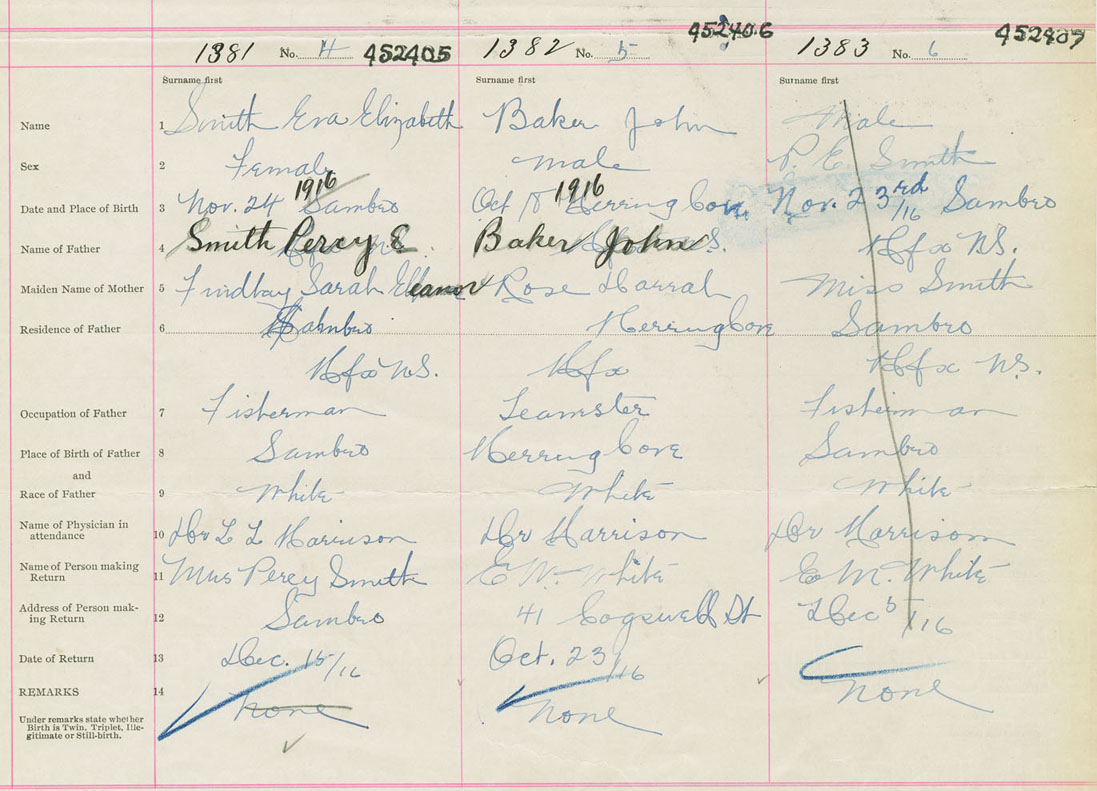 1381 No. 4 452405 1382 No. 5 452406 1383 No. 6 452407
Surname first Surname first Surname first
Name 1 Smith Eva Elizabeth Baker John Male
Sex 2 Female Male P. E. Smith
1916 1916
Date and Place of Birth 3 Nov. 24 Sambro Oct 18 Herring Cove Nov. 23rd/16 Sambro
Name of Father 4 Smith Percy E Baker John Hfx NS.
Maiden Name of Mother 5 Findlay Sarah Eleanor Rose Harrah Miss Smith
Residence of Father 6 Sambro Herring Cove Sambro
Hfx NS. Hfx Hfx NS.
Occupation of Father 7 Fisherman Teamster Fisherman
Place of Birth of Father 8 Sambro Herring Cove Sambro
and
Race of Father 9 White White White
Name of Physician in
attendance 10 Dr L L Harrison Dr Harrison Dr Harrison
Name of Person making
Return 11 Mrs Percy Smith E W. White E M. White
Address of Person mak-
ing Return 12 Sambro 41 Cogswell St Dec 5/16
Date of Return 13 Dec. 15/16 Oct. 23/16
REMARKS 14 none none none
Under remarks state whether
Birth is Twin, Triplet, Ille-
gitimate or Still-birth.